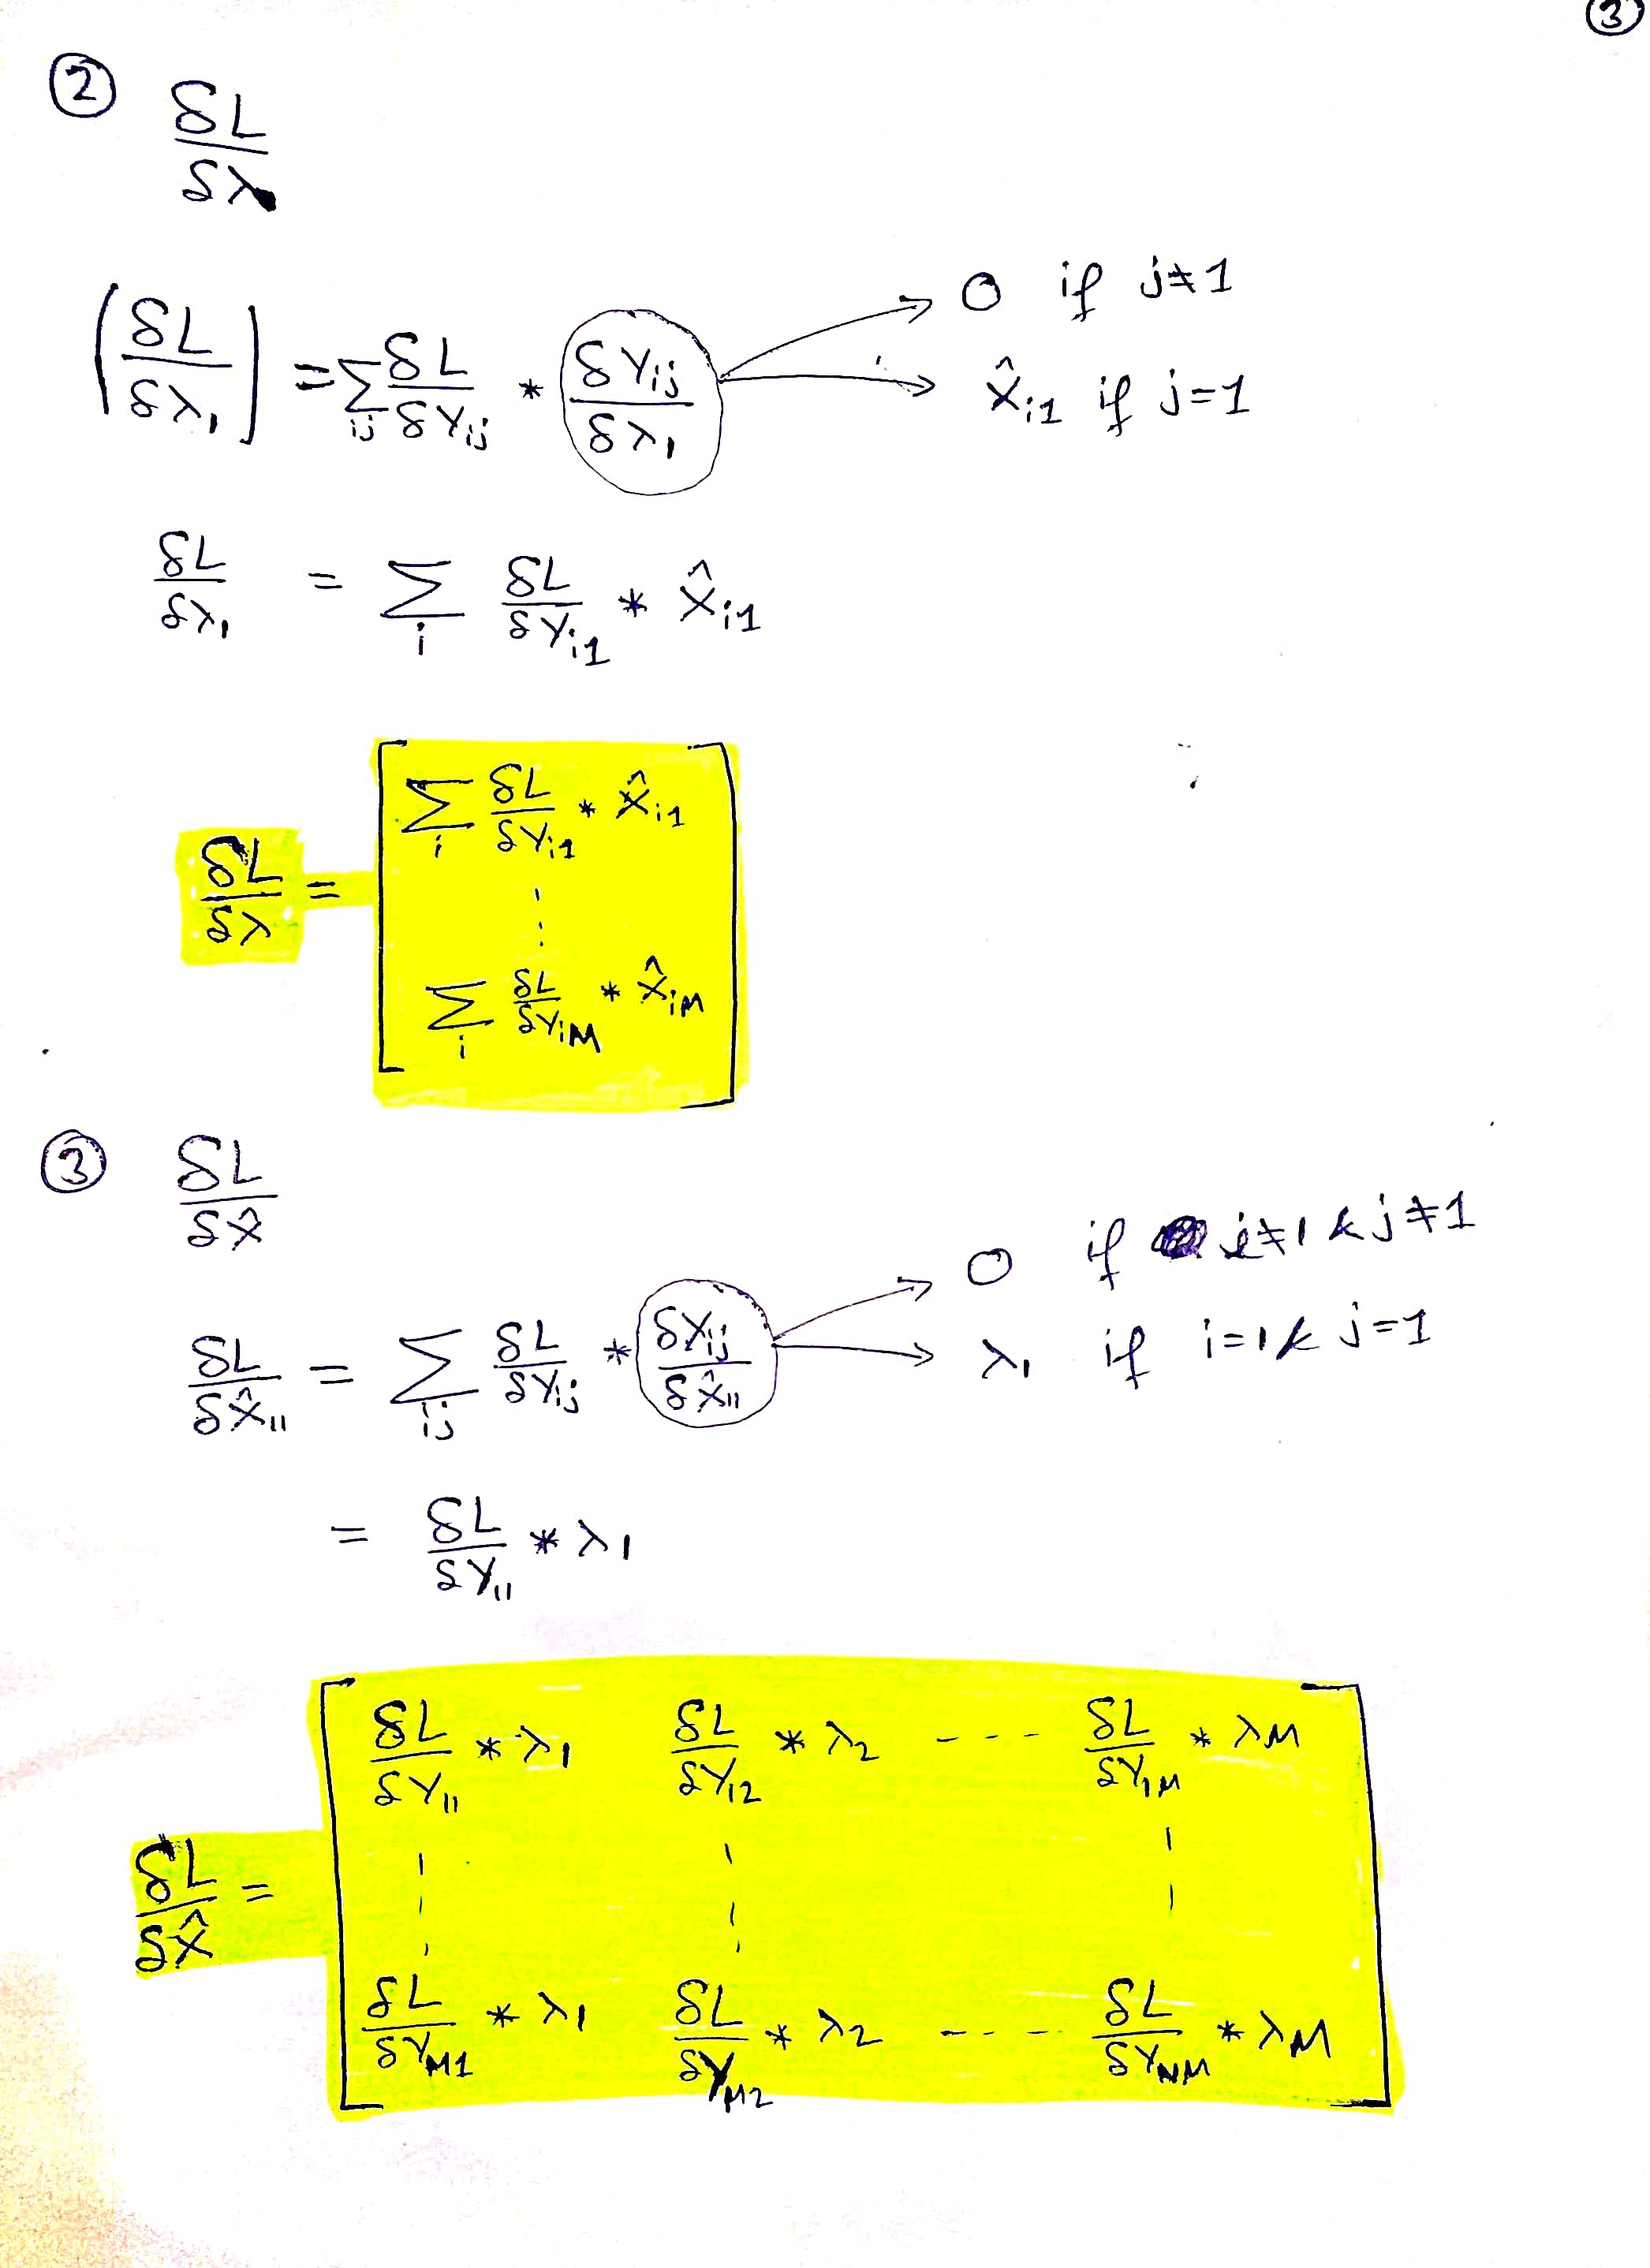 ③
② δL/δλ
(δL/δλ₁) = Σ_ij δL/δY_ij * δY_ij/δλ₁ → 0 if j≠1
→ X̂_i1 if j=1
δL/δλ₁ = Σ_i δL/δY_i1 * X̂_i1
δL/δλ = [ Σ_i δL/δY_i1 * X̂_i1
⋮
Σ_i δL/δY_iM * X̂_iM ]
③ δL/δX̂
δL/δX̂₁₁ = Σ_ij δL/δY_ij * δX_ij/δX̂₁₁ → 0 if i≠1 & j≠1
→ λ₁ if i=1 & j=1
= δL/δY₁₁ * λ₁
δL/δX̂ = [ δL/δY₁₁ * λ₁ δL/δY₁₂ * λ₂ --- δL/δY_1M * λ_M
⋮ ⋮ ⋮
δL/δY_M1 * λ₁ δL/δY_M2 * λ₂ ---- δL/δY_NM * λ_M ]